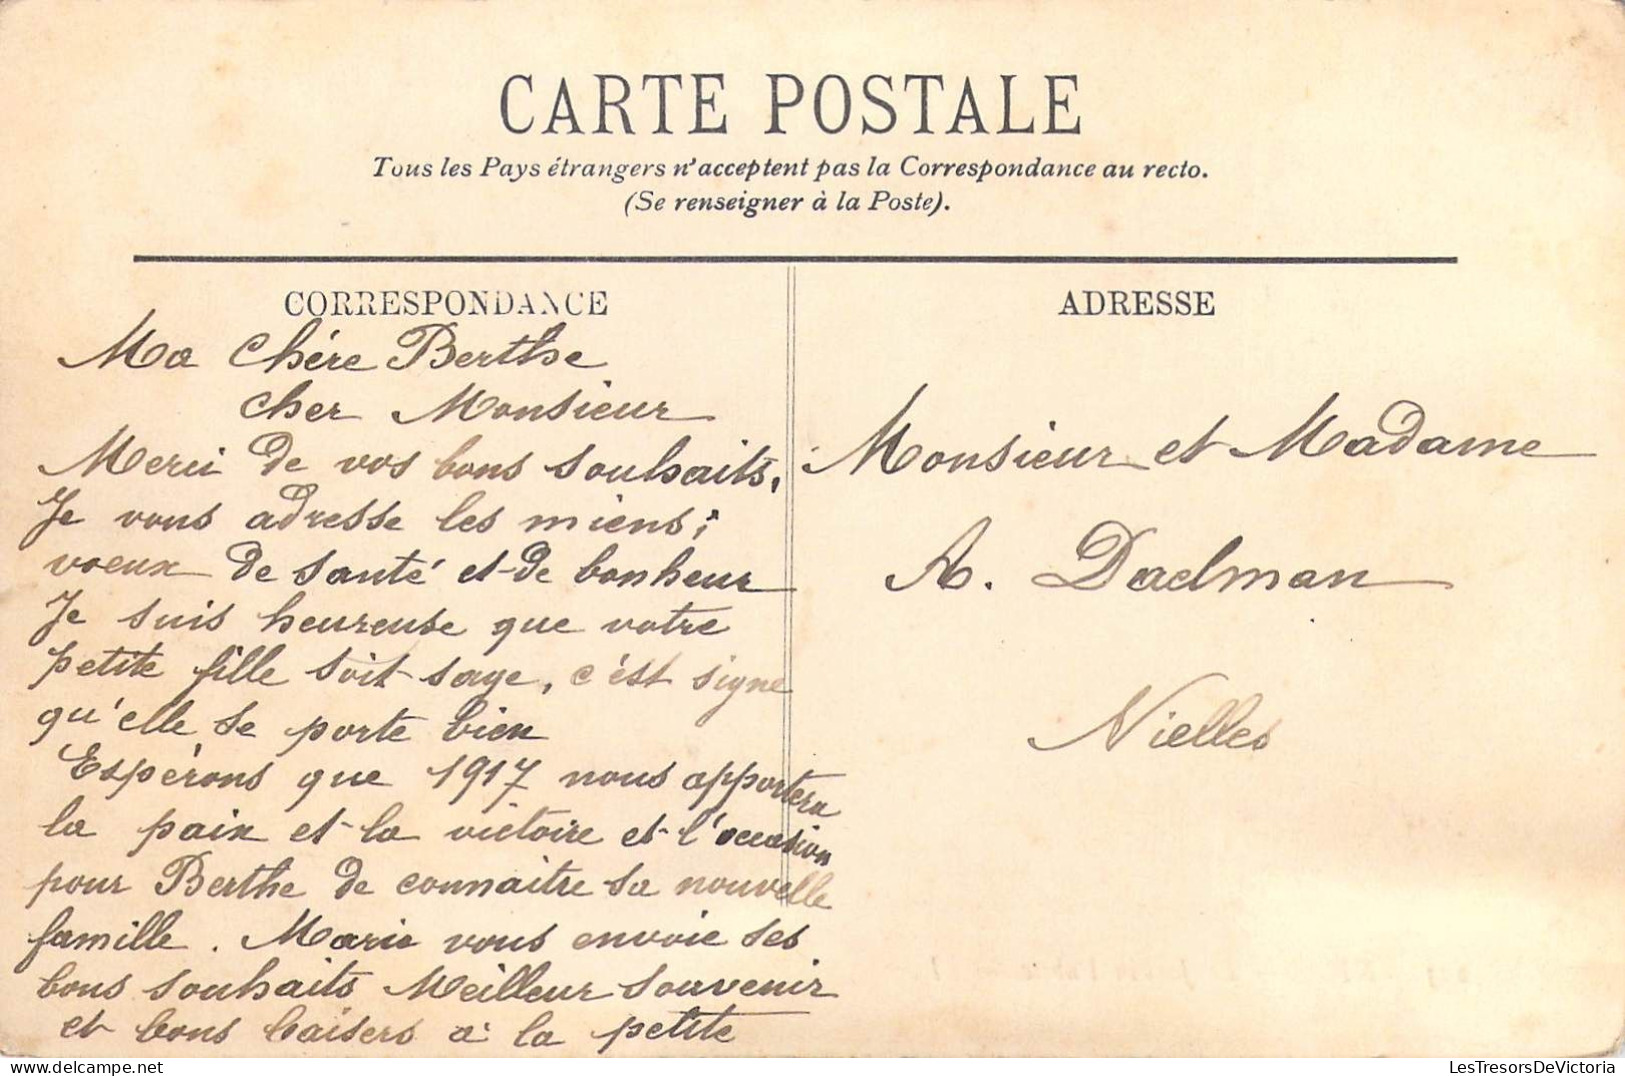 CARTE POSTALE
Tous les Pays étrangers n'acceptent pas la Correspondance au recto.
(Se renseigner à la Poste).
CORRESPONDANCE
Ma chére Berthe
cher Monsieur
Merci de vos bons souhaits,
Je vous adresse les miens;
voeux de santé et de bonheur
Je suis heureuse que votre
petite fille soit sage, c'est signe
qu'elle se porte bien
Espérons que 1917 nous apportera
la paix et la victoire et l'occasion
pour Berthe de connaitre sa nouvelle
famille. Marie vous envoie ses
bons souhaits Meilleur souvenir
et bons baisers à la petite
ADRESSE
Monsieur et Madame
A. Daelman
Nielles
LesTresorsDeVictoria